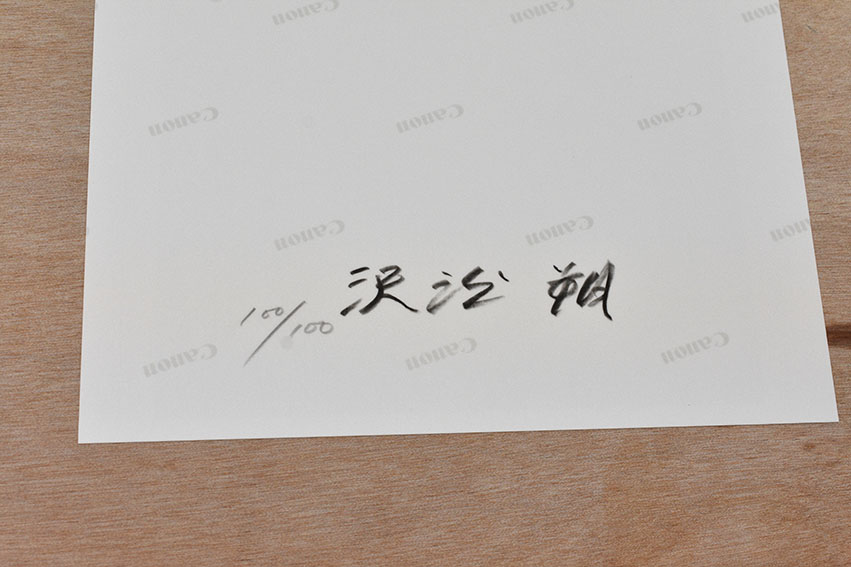 Canon Canon Canon
Canon Canon Canon
Canon Canon Canon
100/100 沢渡 朔
Canon Canon Canon